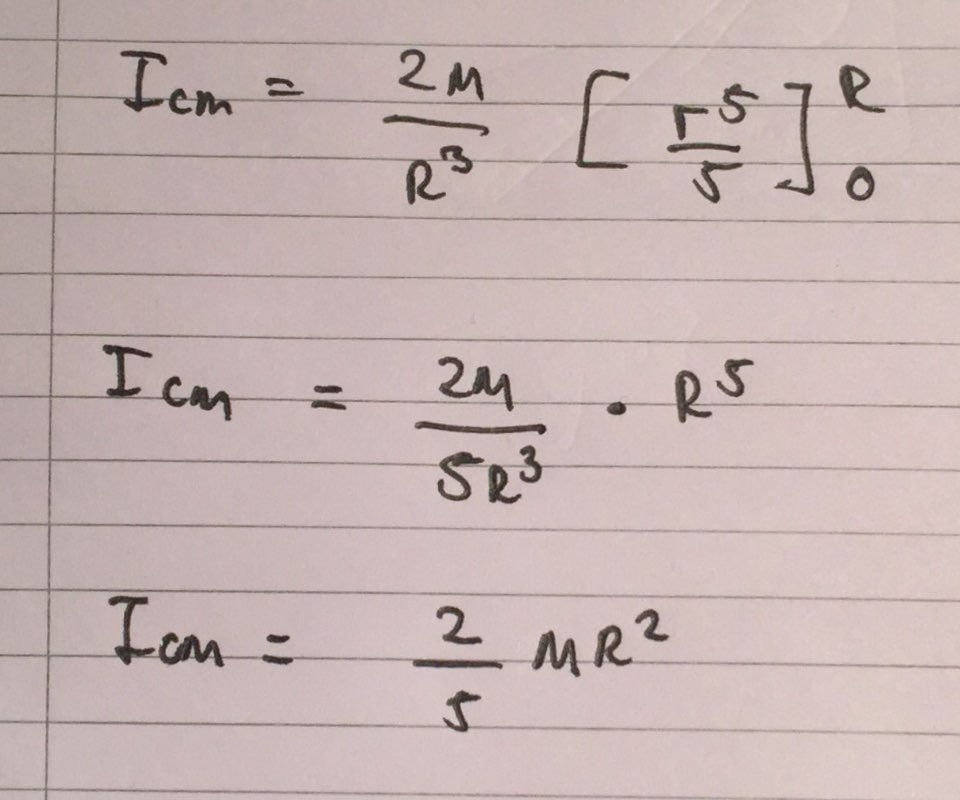 I_cm = \frac{2M}{R^3} \left[ \frac{r^5}{5} \right]_0^R
I_cm = \frac{2M}{5R^3} \cdot R^5
I_cm = \frac{2}{5} MR^2